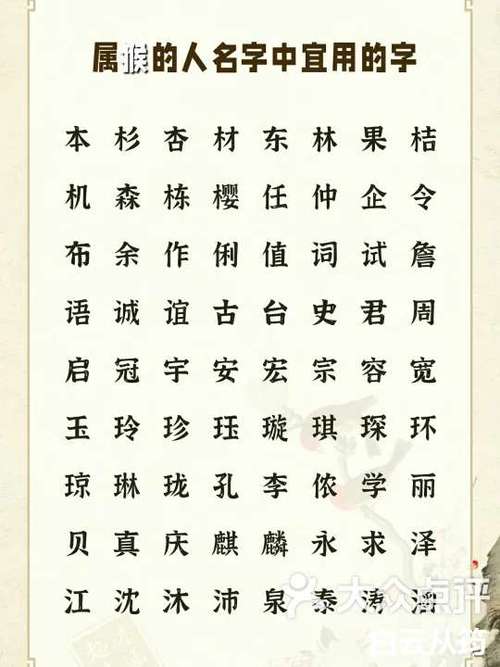 属猴的人名字中宜用的字
本 杉 杏 材 东 林 果 桔
机 森 栋 樱 任 仲 企 令
布 余 作 俐 值 词 试 詹
语 诚 谊 古 台 史 君 周
启 冠 宇 安 宏 宗 容 宽
玉 玲 珍 珏 璇 琪 琛 环
琼 琳 珑 孔 李 侬 学 丽
贝 真 庆 麒 麟 永 求 泽
江 沈 沐 沛 泉 泰 涛 滔
大众点评
白云从筠